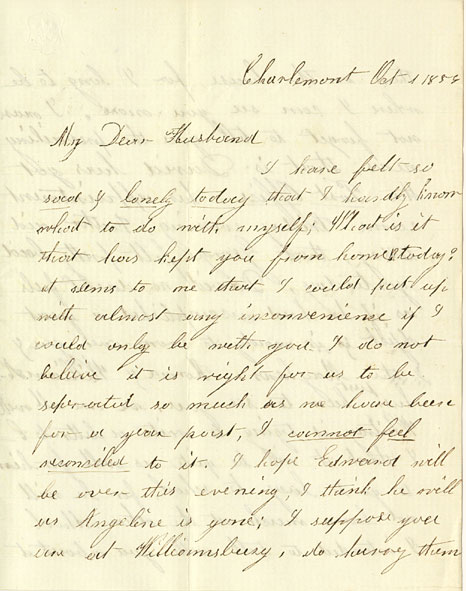 Charlemont Oct 1 1858
My Dear Husband
I have felt so
sad & lonely today that I hardly know
what to do with myself; What is it
that has kept you from home today?
it seems to me that I could put up
with almost any inconvenience if I
could only be with you. I do not
believe it is right for us to be
seperated so much as we have been
for a year past, I cannot feel
reconciled to it. I hope Edward will
be over this evening, I think he will
as Angeline is gone; I suppose you
are at Williamsburg, do hurry them